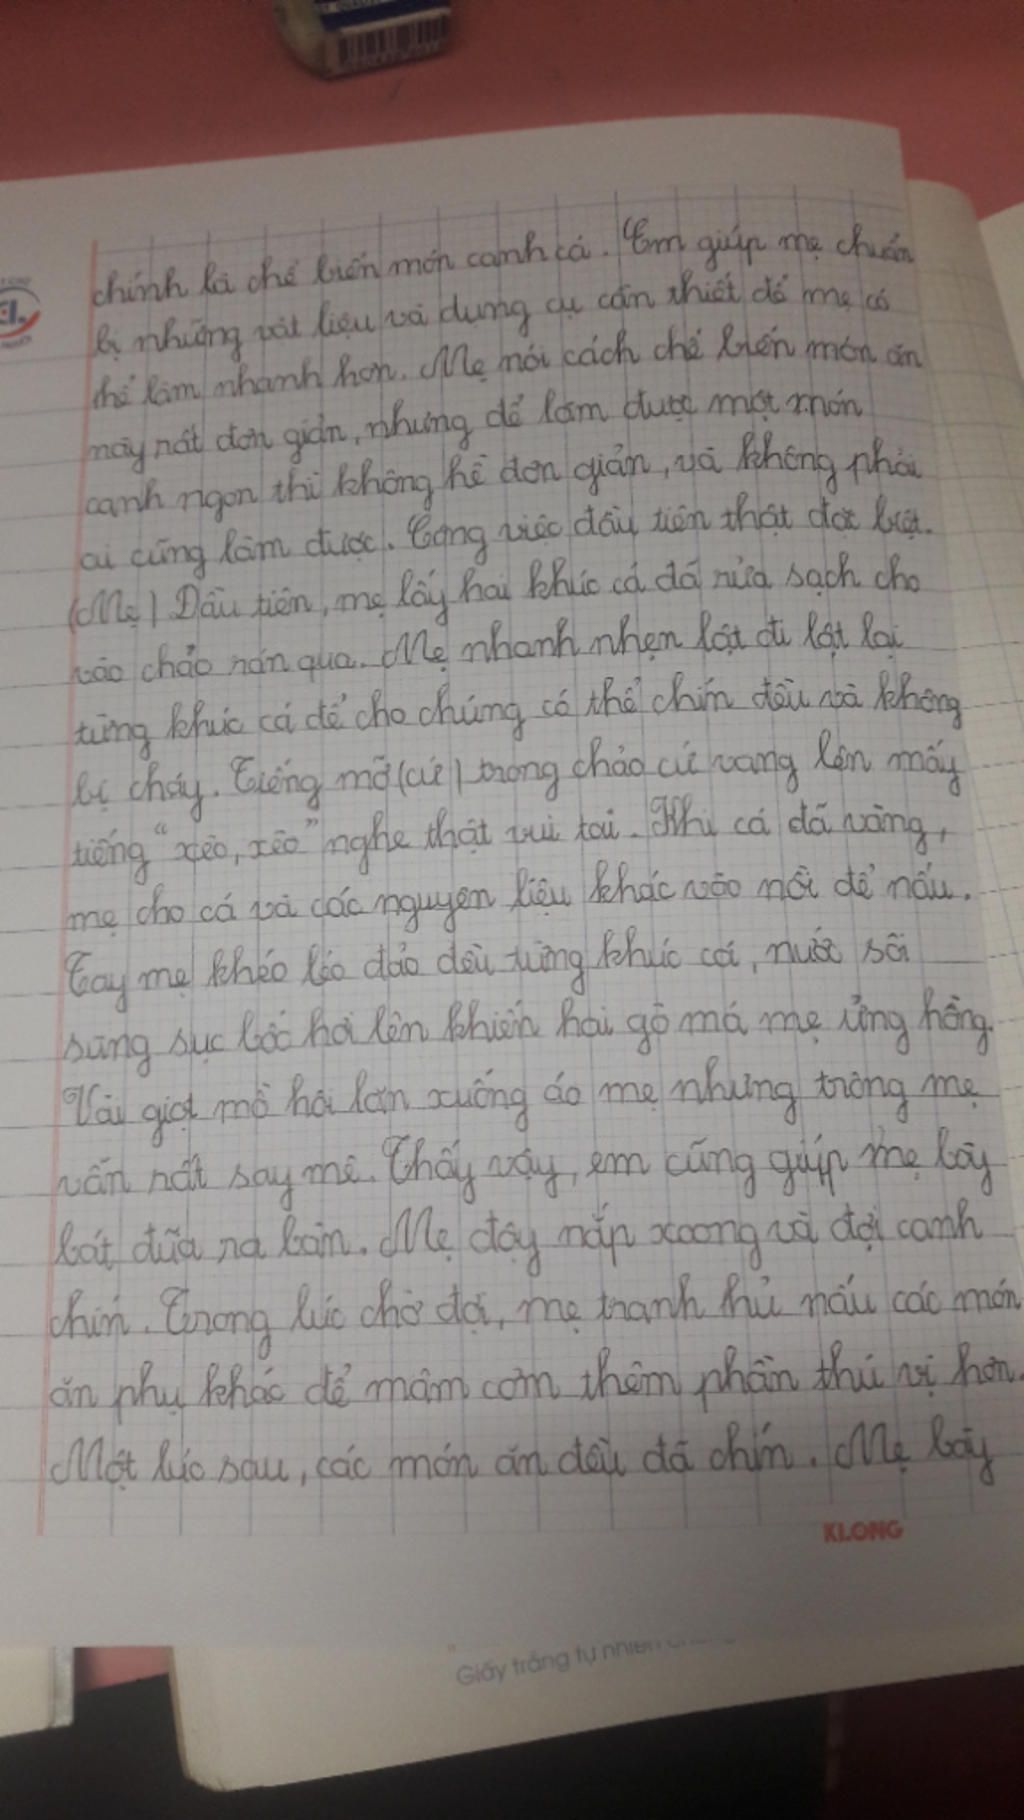 chính là chế biến món canh cá. Em giúp mẹ chuẩn
bị những vật liệu và dụng cụ cần thiết để mẹ có
thể làm nhanh hơn. Mẹ nói cách chế biến món ăn
này rất đơn giản, nhưng để làm được một món
canh ngon thì không hề đơn giản, và không phải
ai cũng làm được. Công việc đầu tiên thật đặc biệt.
(Mẹ) Đầu tiên, mẹ lấy hai khúc cá đã rửa sạch cho
vào chảo rán qua. Mẹ nhanh nhẹn lật đi lật lại
từng khúc cá để cho chúng có thể chín đều và không
bị cháy. Tiếng mỡ (cứ) trong chảo cứ vang lên mấy
tiếng "xèo, xèo" nghe thật vui tai. Khi cá đã vàng,
mẹ cho cá và các nguyên liệu khác vào nồi để nấu.
Tay mẹ khéo léo đảo đều từng khúc cá, nước sôi
sùng sục bốc hơi lên khiến hai gò má mẹ ửng hồng.
Vài giọt mồ hôi lăn xuống áo mẹ nhưng trông mẹ
vẫn rất say mê. Thấy vậy, em cũng giúp mẹ bày
bát đũa ra bàn. Mẹ đậy nắp xoong và đợi canh
chín. Trong lúc chờ đợi, mẹ tranh thủ nấu các món
ăn phụ khác để mâm cơm thêm phần thú vị hơn.
Một lúc sau, các món ăn đều đã chín. Mẹ bày
KLONG
Giấy trắng tự nhiên